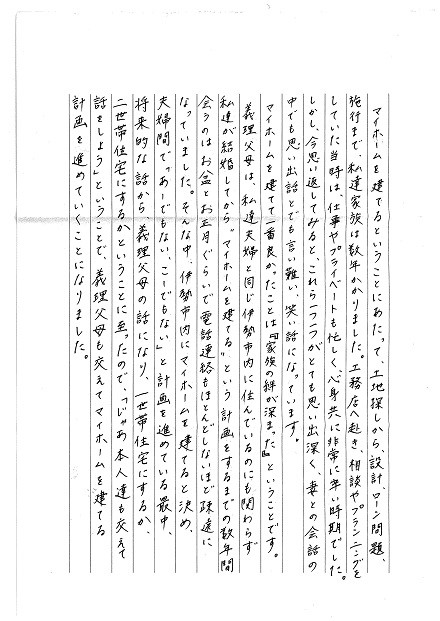 マイホームを建てるということにあたって、土地探しから、設計、ローン問題、
施行まで、私達家族は数年かかりました。工務店へ赴き、相談やプランニングを
していた当時は、仕事やプライベートも忙しく、心身共に非常に辛い時期でした。
しかし、今思い返してみると、これら一つ一つがとても思い出深く、妻との会話の
中でも思い出話とでも言い難い、笑い話になっています。
マイホームを建てて一番良かったことは『家族の絆が深まった』ということです。
義理父母は、私達夫婦と同じ伊勢市内に住んでいるのにも関わらず
私達が結婚してから〝マイホームを建てる〟という計画をするまでの数年間
会うのはお盆とお正月ぐらいで電話連絡もほとんどしないほど疎遠に
なっていました。そんな中、伊勢市内にマイホームを建てると決め、
夫婦間で〝あーでもない、こーでもない〟と計画を進めている最中、
将来的な話から、義理父母の話になり、一世帯住宅にするか、
二世帯住宅にするかということに至ったので、「じゃあ本人達も交えて
話をしよう」ということで、義理父母も交えてマイホームを建てる
計画を進めていくことになりました。